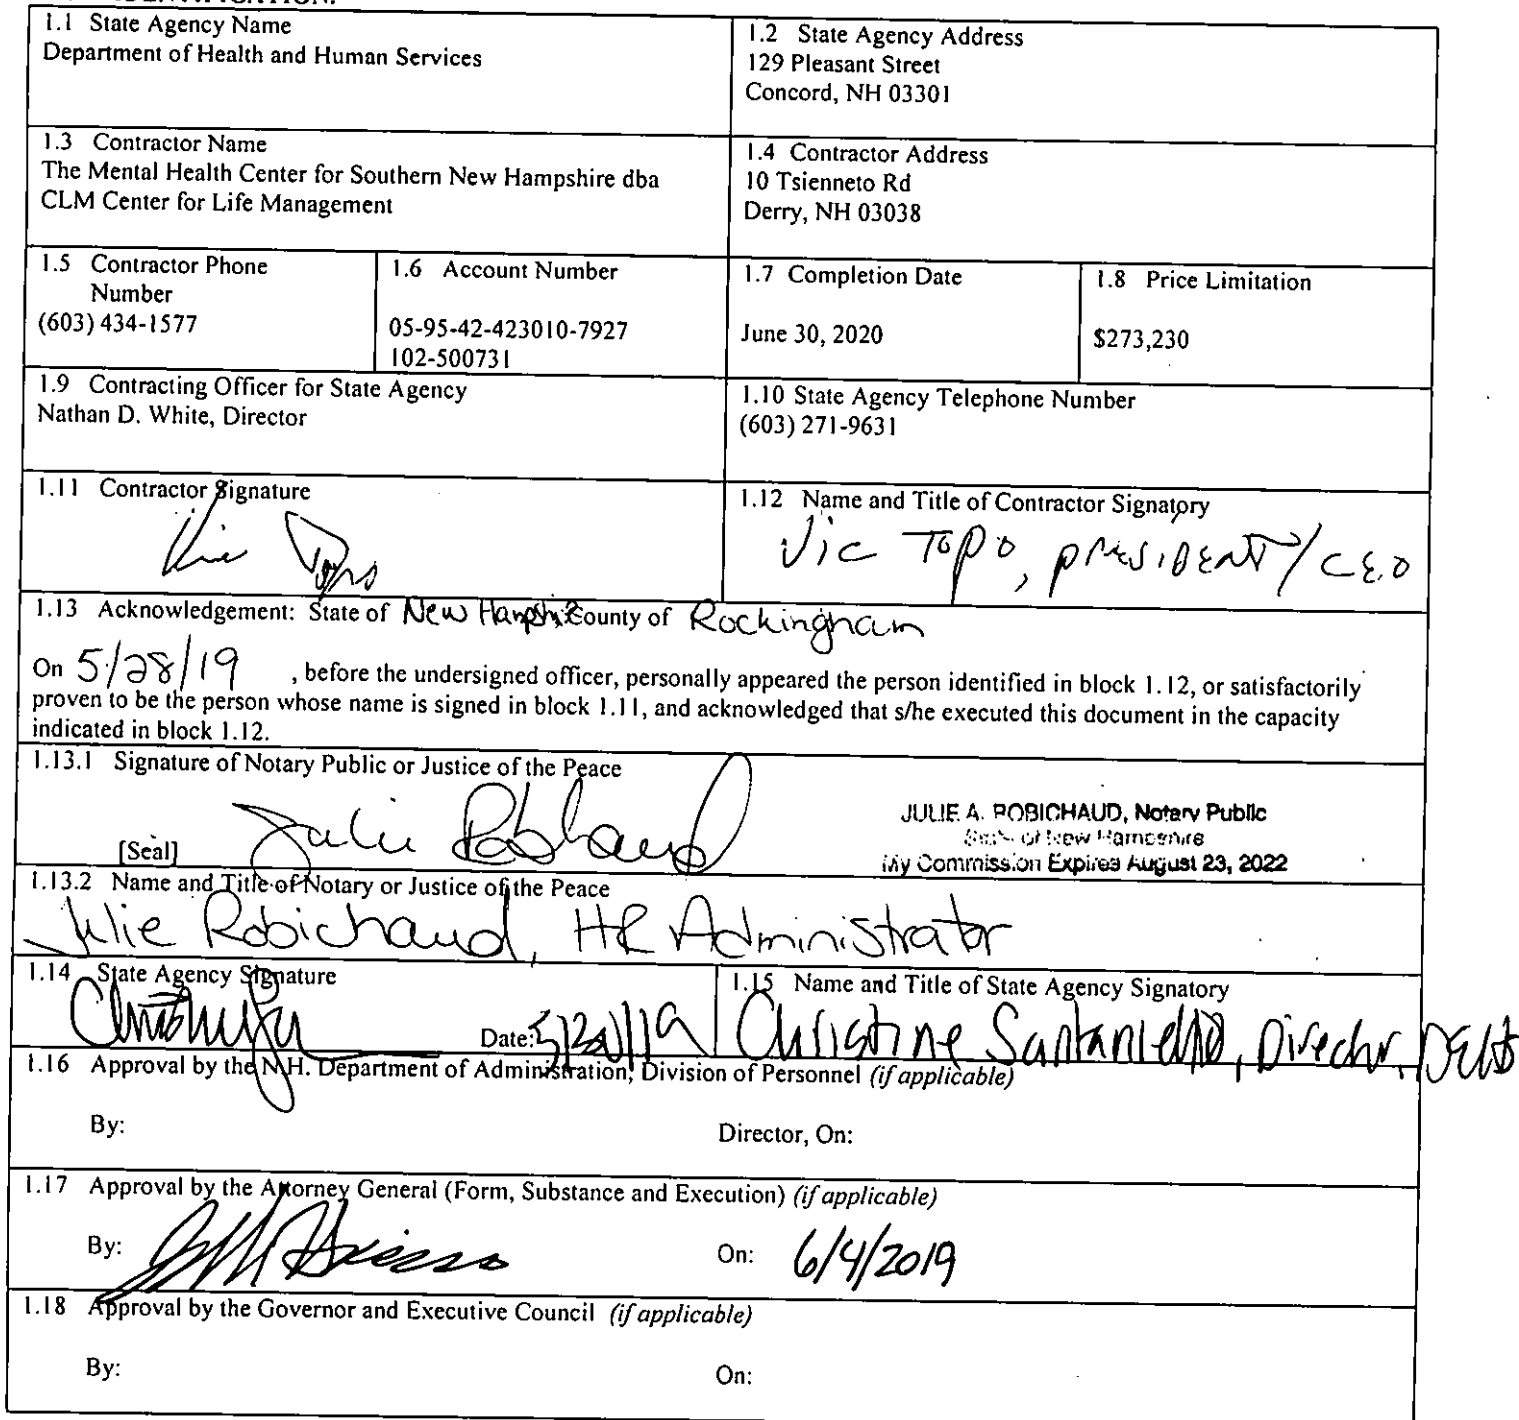 1.1 State Agency Name
Department of Health and Human Services
1.2 State Agency Address
129 Pleasant Street
Concord, NH 03301
1.3 Contractor Name
The Mental Health Center for Southern New Hampshire dba
CLM Center for Life Management
1.4 Contractor Address
10 Tsienneto Rd
Derry, NH 03038
1.5 Contractor Phone
Number
(603) 434-1577
1.6 Account Number
05-95-42-423010-7927
102-500731
1.7 Completion Date
June 30, 2020
1.8 Price Limitation
$273,230
1.9 Contracting Officer for State Agency
Nathan D. White, Director
1.10 State Agency Telephone Number
(603) 271-9631
1.11 Contractor Signature
Vic Topo
1.12 Name and Title of Contractor Signatory
Vic Topo, President/CEO
1.13 Acknowledgement: State of New Hampshire County of Rockingham
On 5/28/19 , before the undersigned officer, personally appeared the person identified in block 1.12, or satisfactorily
proven to be the person whose name is signed in block 1.11, and acknowledged that s/he executed this document in the capacity
indicated in block 1.12.
1.13.1 Signature of Notary Public or Justice of the Peace
Julie Robichaud
[Seal]
JULIE A. ROBICHAUD, Notary Public
State of New Hampshire
My Commission Expires August 23, 2022
1.13.2 Name and Title of Notary or Justice of the Peace
Julie Robichaud, HR Administrator
1.14 State Agency Signature
Date:
1.15 Name and Title of State Agency Signatory
Christine Santaniello, Director,
1.16 Approval by the N.H. Department of Administration, Division of Personnel (if applicable)
By:
Director, On:
1.17 Approval by the Attorney General (Form, Substance and Execution) (if applicable)
By:
On: 6/4/2019
1.18 Approval by the Governor and Executive Council (if applicable)
By:
On: